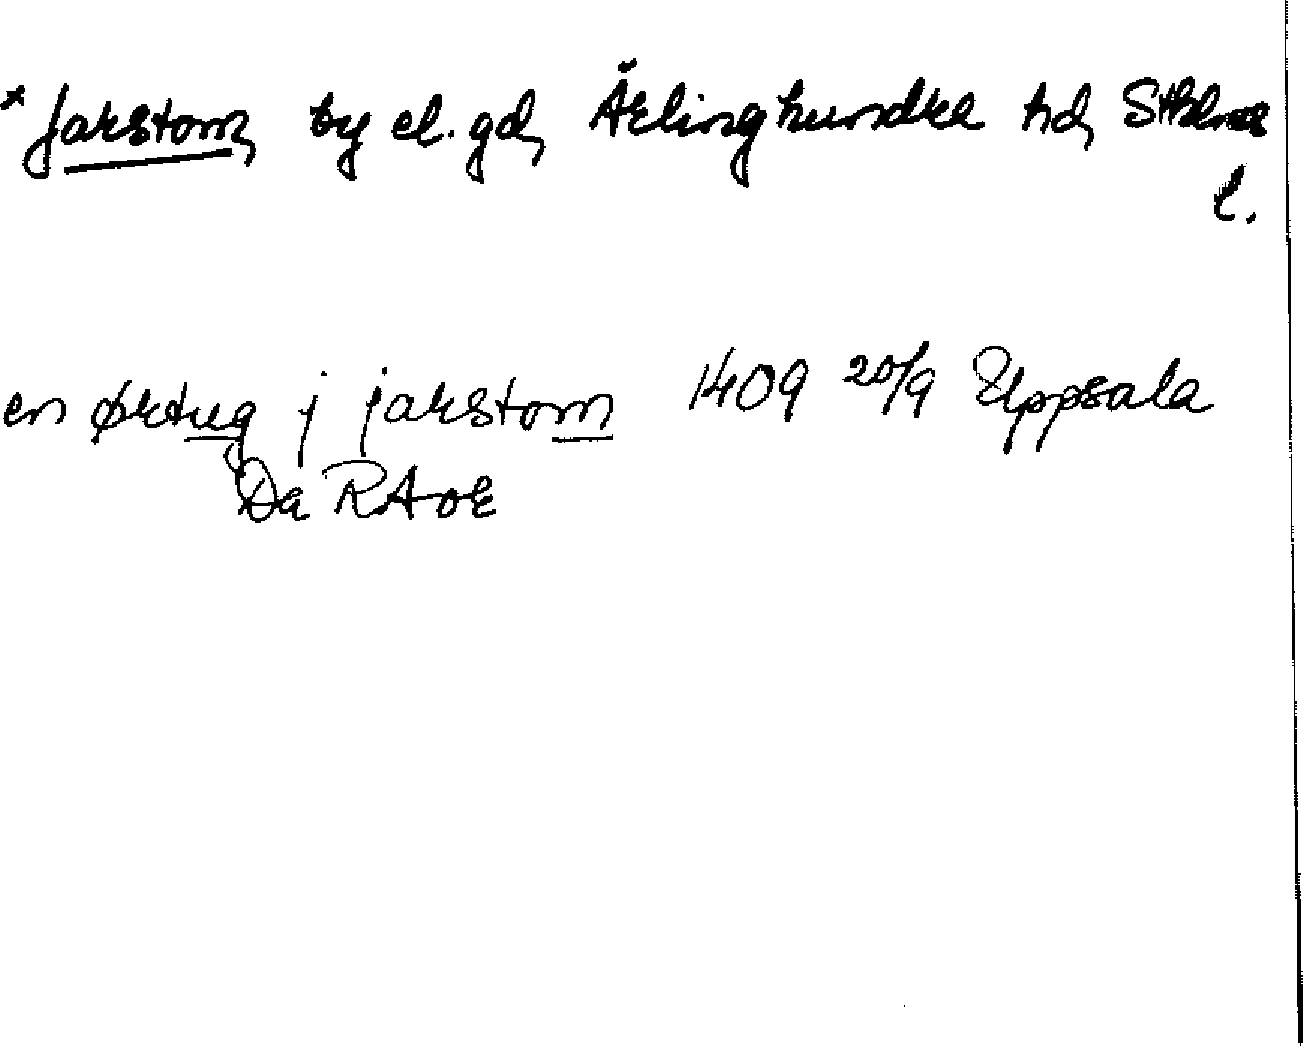 * Jarstom, by el. gd, Ärlinghundra hd, Sthlms
l.
en ørtug j jarstom 1409 20/9 Uppsala
Da RAor